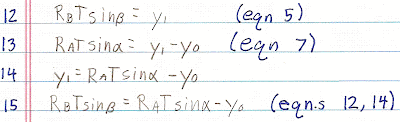 12 RBTsinβ = y₁ (eqn 5)
13 RATsinα = y₁ - y₀ (eqn 7)
14 y₁ = RATsinα - y₀
15 RBTsinβ = RATsinα - y₀ (eqn.s 12, 14)